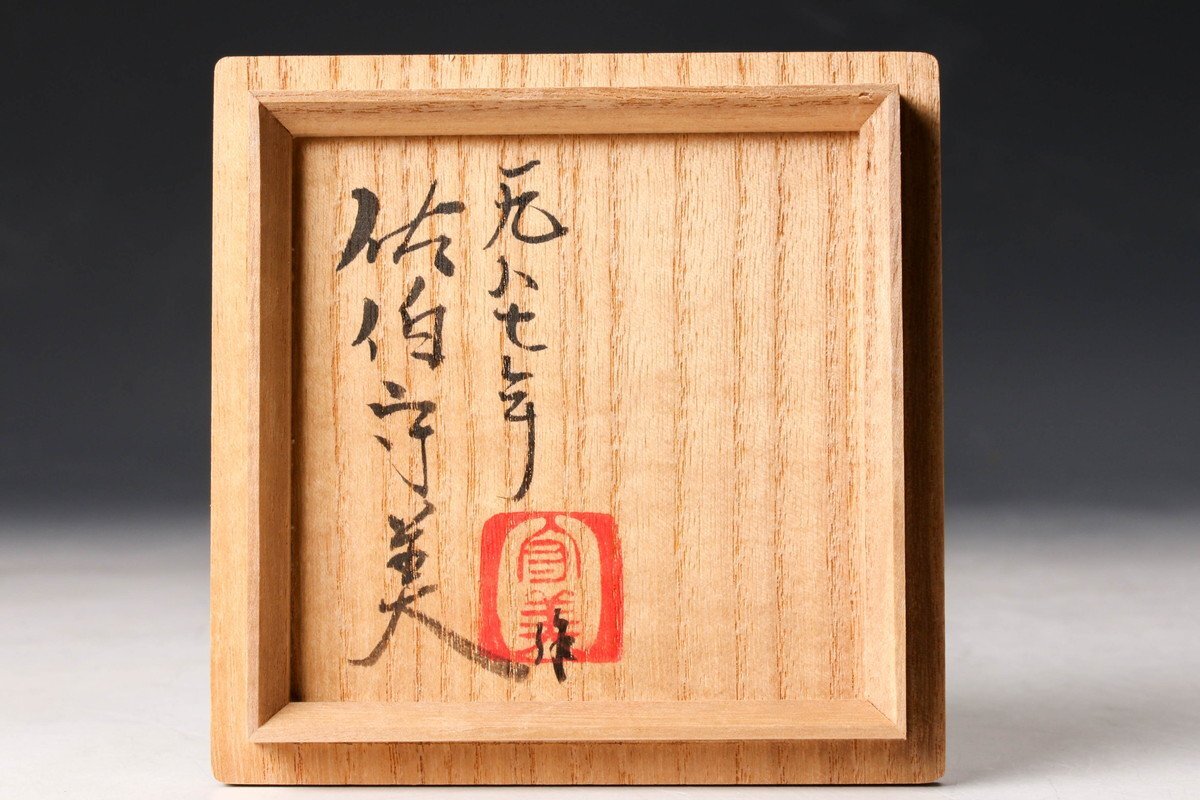 一九八七年
佐伯守美
作